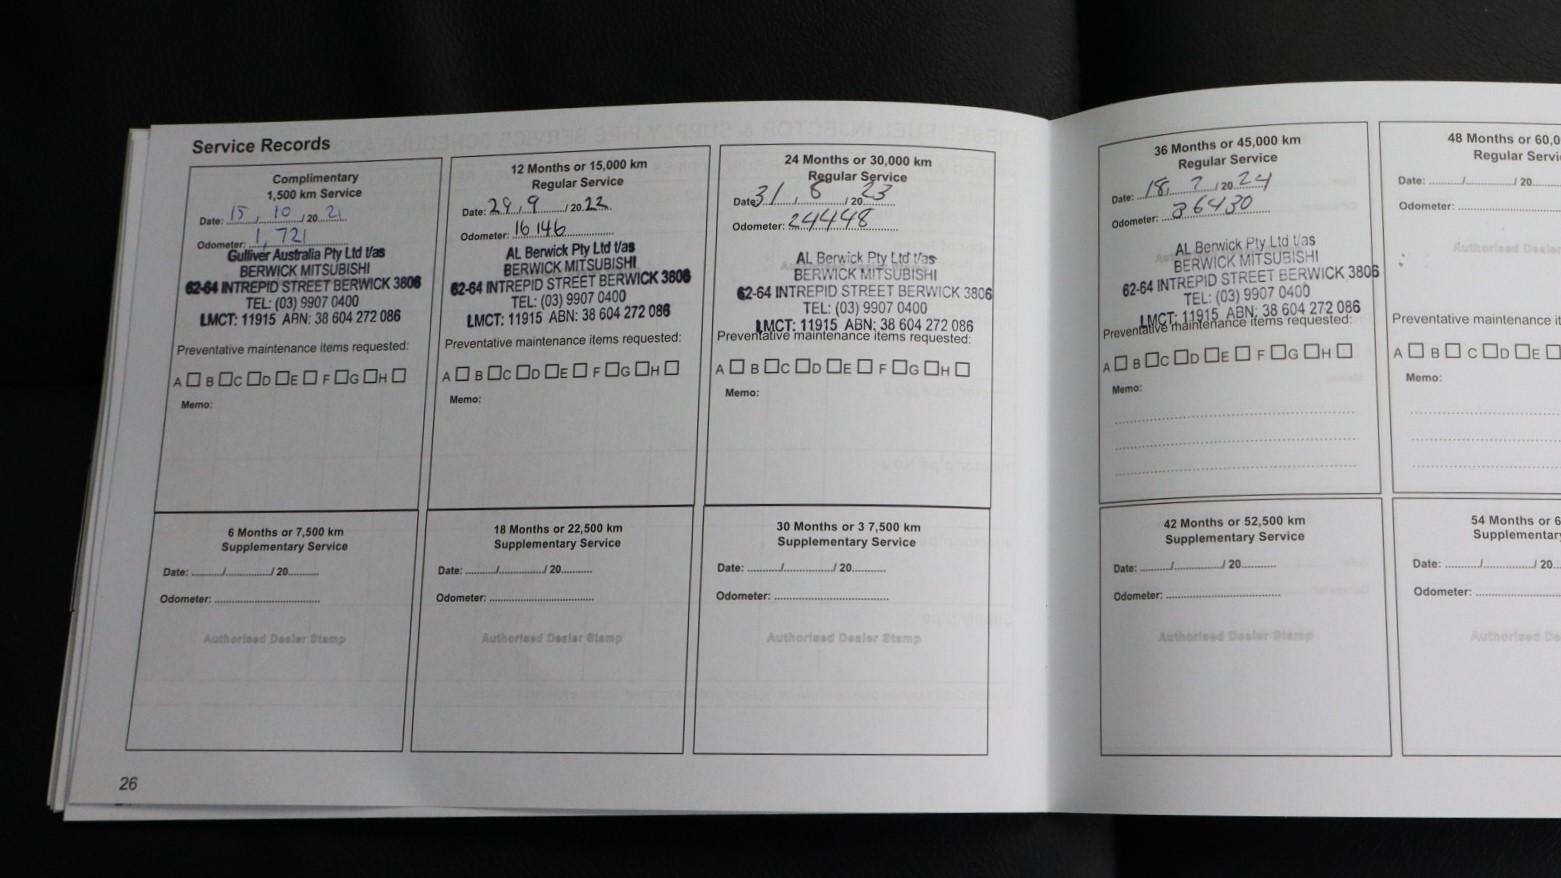 Service Records
Complimentary
1,500 km Service
Date: 15 / 10 / 20 21
Odometer: 1,721
Gulliver Australia Pty Ltd t/as
BERWICK MITSUBISHI
62-64 INTREPID STREET BERWICK 3806
TEL: (03) 9907 0400
LMCT: 11915 ABN: 38 604 272 086
Preventative maintenance items requested:
A B C D E F G H
Memo:
12 Months or 15,000 km
Regular Service
Date: 29 / 9 / 20 22
Odometer: 16 146
AL Berwick Pty Ltd t/as
BERWICK MITSUBISHI
62-64 INTREPID STREET BERWICK 3806
TEL: (03) 9907 0400
LMCT: 11915 ABN: 38 604 272 086
Preventative maintenance items requested:
A B C D E F G H
Memo:
24 Months or 30,000 km
Regular Service
Date: 31 / 8 / 20 23
Odometer: 24448
AL Berwick Pty Ltd t/as
BERWICK MITSUBISHI
62-64 INTREPID STREET BERWICK 3806
TEL: (03) 9907 0400
LMCT: 11915 ABN: 38 604 272 086
Preventative maintenance items requested:
A B C D E F G H
Memo:
36 Months or 45,000 km
Regular Service
Date: 18 / 7 / 20 24
Odometer: 36430
AL Berwick Pty Ltd t/as
BERWICK MITSUBISHI
62-64 INTREPID STREET BERWICK 3806
TEL: (03) 9907 0400
LMCT: 11915 ABN: 38 604 272 086
Preventative maintenance items requested:
A B C D E F G H
Memo:
48 Months or 60,0
Regular Servi
Date: / / 20
Odometer:
Authorised Dealer
Preventative maintenance it
A B C D E
Memo:
6 Months or 7,500 km
Supplementary Service
Date: / / 20
Odometer:
Authorised Dealer Stamp
18 Months or 22,500 km
Supplementary Service
Date: / / 20
Odometer:
Authorised Dealer Stamp
30 Months or 3 7,500 km
Supplementary Service
Date: / / 20
Odometer:
Authorised Dealer Stamp
42 Months or 52,500 km
Supplementary Service
Date: / / 20
Odometer:
Authorised Dealer Stamp
54 Months or 6
Supplementary
Date: / / 20
Odometer:
Authorised De
26